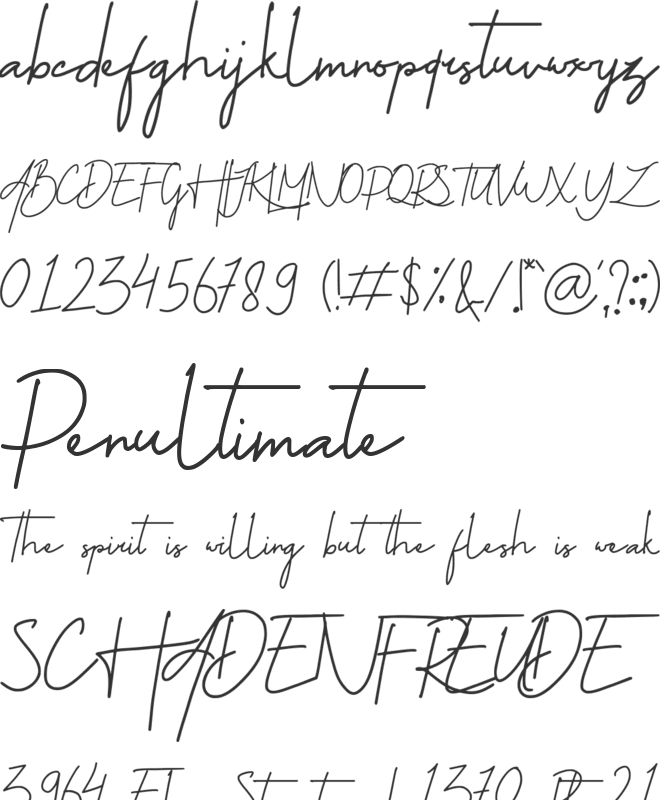 abcdefghijklmnopqrstuvwxyz
ABCDEFGHIJKLMNOPQRSTUVWXYZ
0123456789 (!#$%&/.|*`@',?:;)
Penultimate
The spirit is willing but the flesh is weak
SCHADENFREUDE
3964 1370